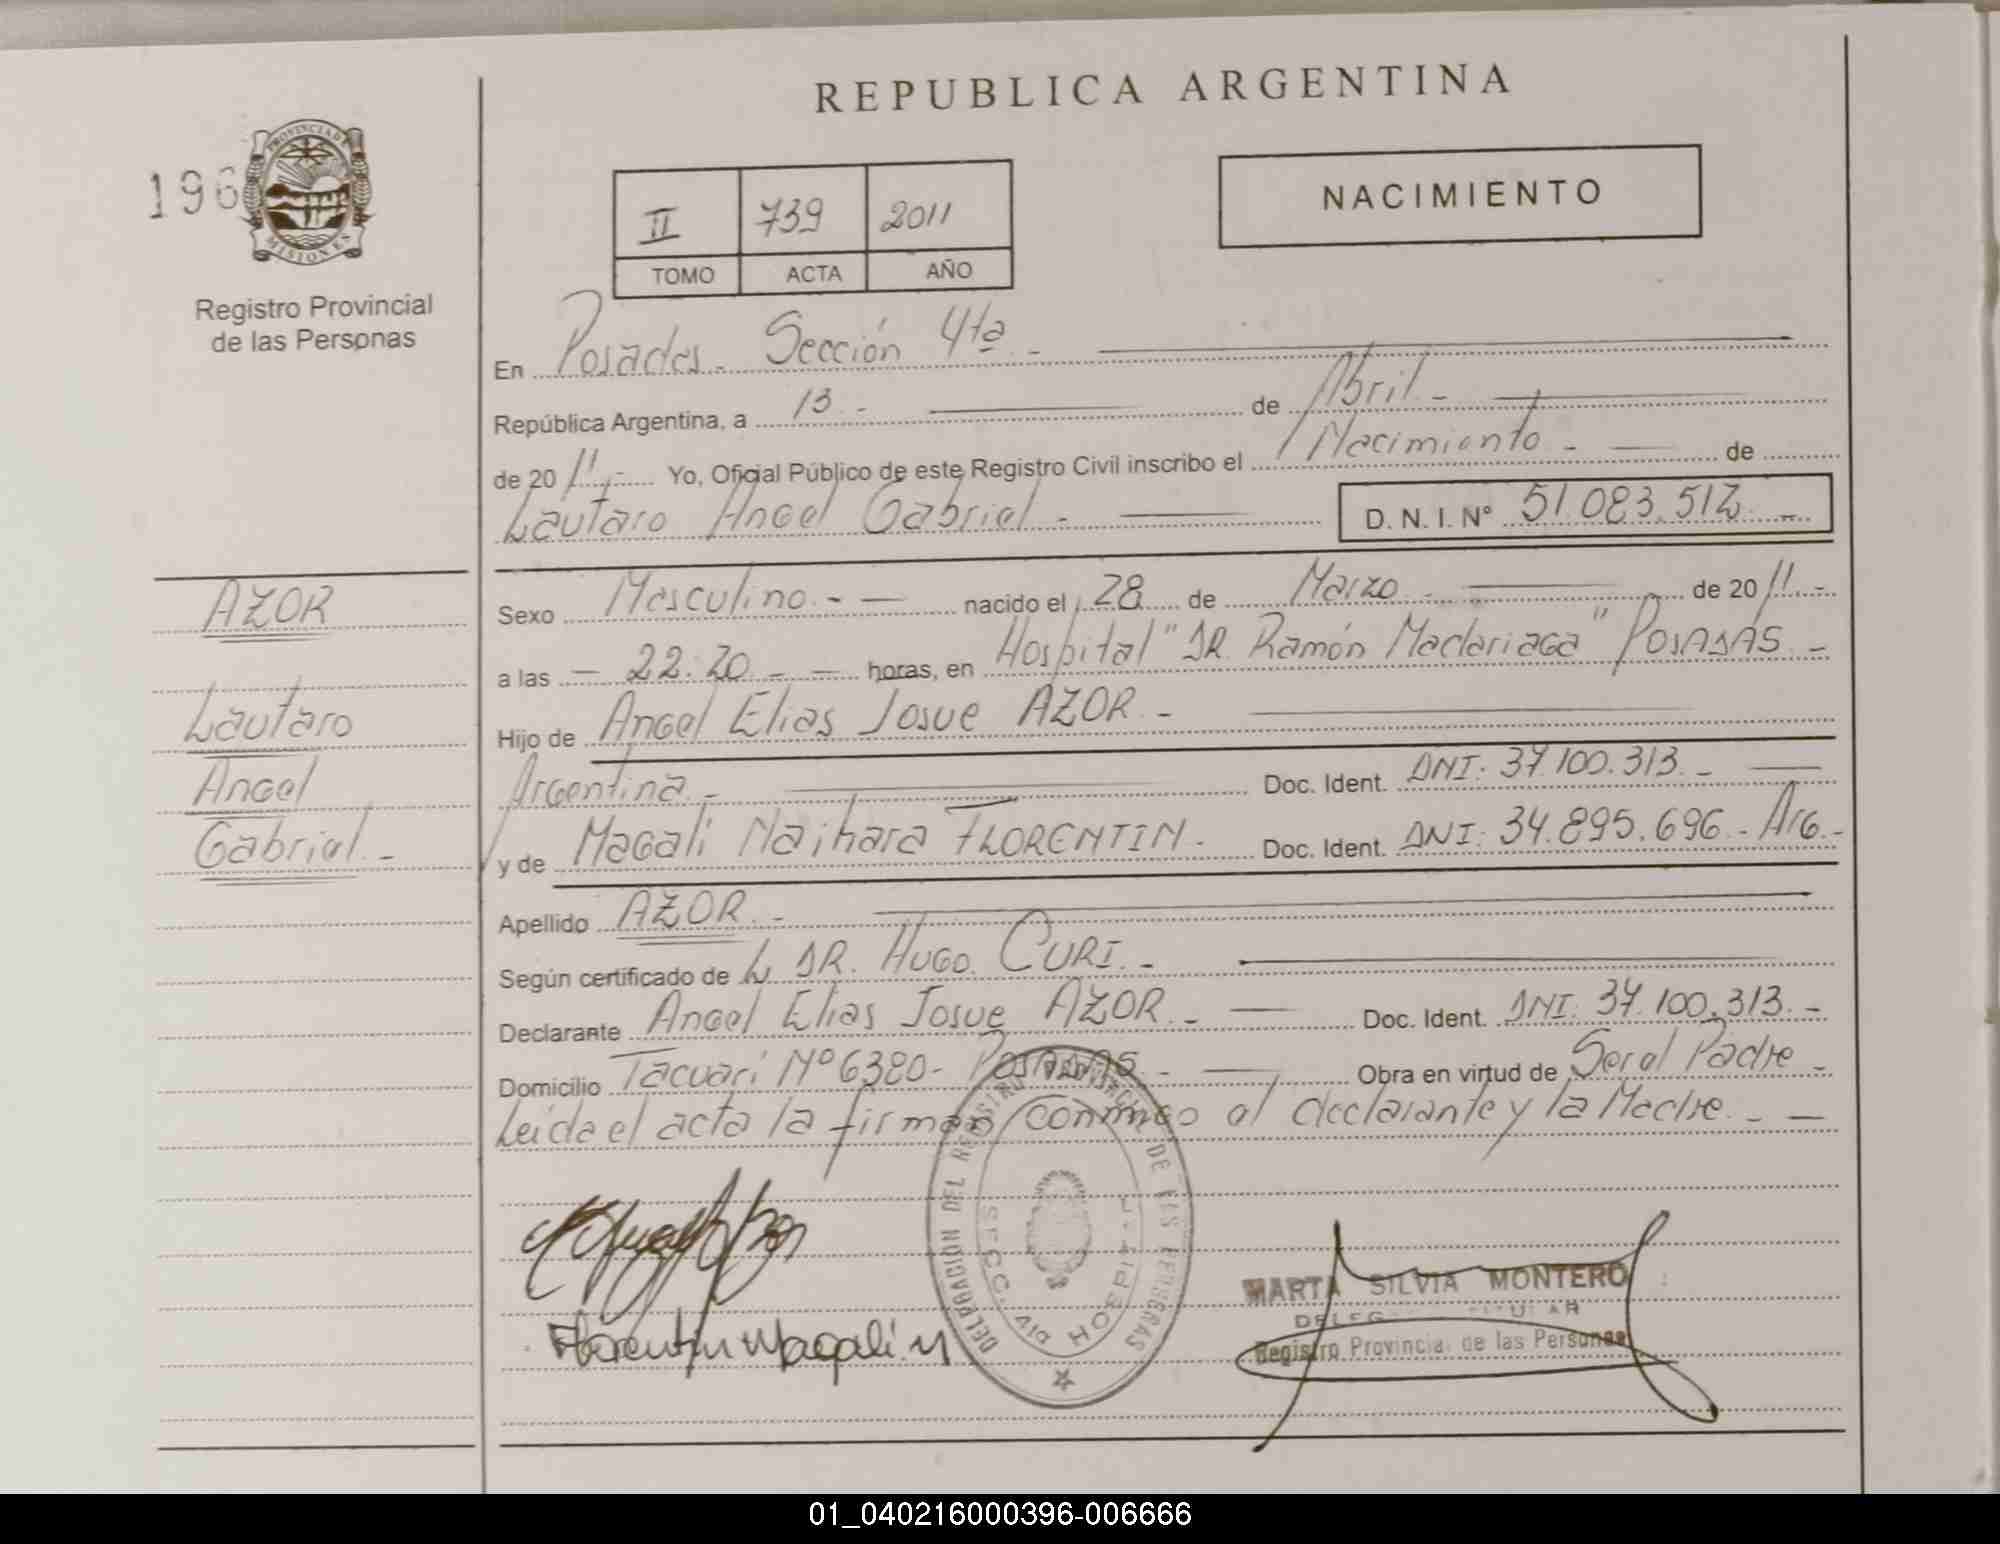 REPUBLICA ARGENTINA
196
PROVINCIA DE MISIONES
Registro Provincial
de las Personas
II 739 2011
TOMO ACTA AÑO
NACIMIENTO
En Posadas - Sección 4ta -
República Argentina, a 13 - de Abril -
de 2011 - Yo, Oficial Público de este Registro Civil inscribo el Nacimiento - de
Lautaro Angel Gabriel - D. N. I. Nº 51.083.512 -
AZOR
Lautaro
Angel
Gabriel -
Sexo Masculino - - nacido el 28 de Marzo - de 2011 -
a las - 22:20 - - horas, en Hospital "DR. Ramón Madariaga" POSADAS -
Hijo de Angel Elias Josue AZOR -
Argentina - Doc. Ident. DNI: 37.100.313 -
y de Magali Naihara FLORENTIN - Doc. Ident. DNI: 34.895.696 - Arg. -
Apellido AZOR -
Según certificado de DR. HUGO CURI -
Declarante Angel Elias Josue AZOR - Doc. Ident. DNI: 37.100.313 -
Domicilio Tacuarí Nº 6380 - POSADAS - Obra en virtud de Ser el Padre -
Leida el acta la firman conmigo el declarante y la Madre - -
DELEGACION DEL REGISTRO PROVINCIAL DE LAS PERSONAS
SECC. 4ta HOSPITAL
Florentin Magali N
MARTA SILVIA MONTERO
DELEGADA TITULAR
Registro Provincial de las Personas
01_040216000396-006666